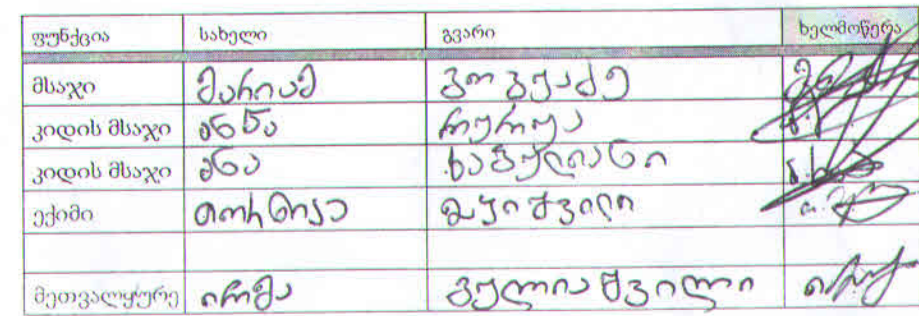 ფუნქცია სახელი გვარი ხელმოწერა
მსაჯი მარიამ
კიდის მსაჯი ანნა რურუა
კიდის მსაჯი ანა ხაბულიანი
ექიმი თორნიკე
მეთვალყურე ირმა გულიაშვილი